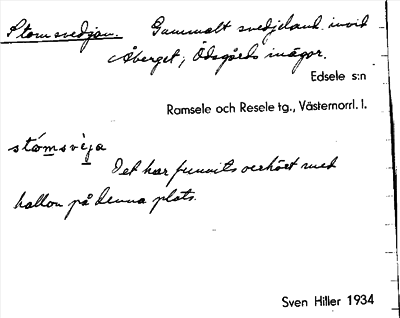 Stomsvedjan. Gammalt svedjeland invid
Åberget, Ödsgårds inägor.
Edsele s:n
Ramsele och Resele tg., Västernorrl. l.
stómsvèja
Det har funnits oerhört med
hallon på denna plats.
Sven Hiller 1934